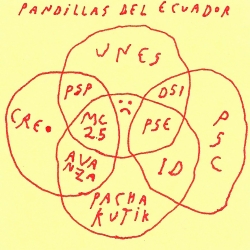 PANDILLAS DEL ECUADOR
UNES
PSP
DSI
CREO
MC
25
PSE
PSC
AVA
NZA
ID
PACHA
KUTIK